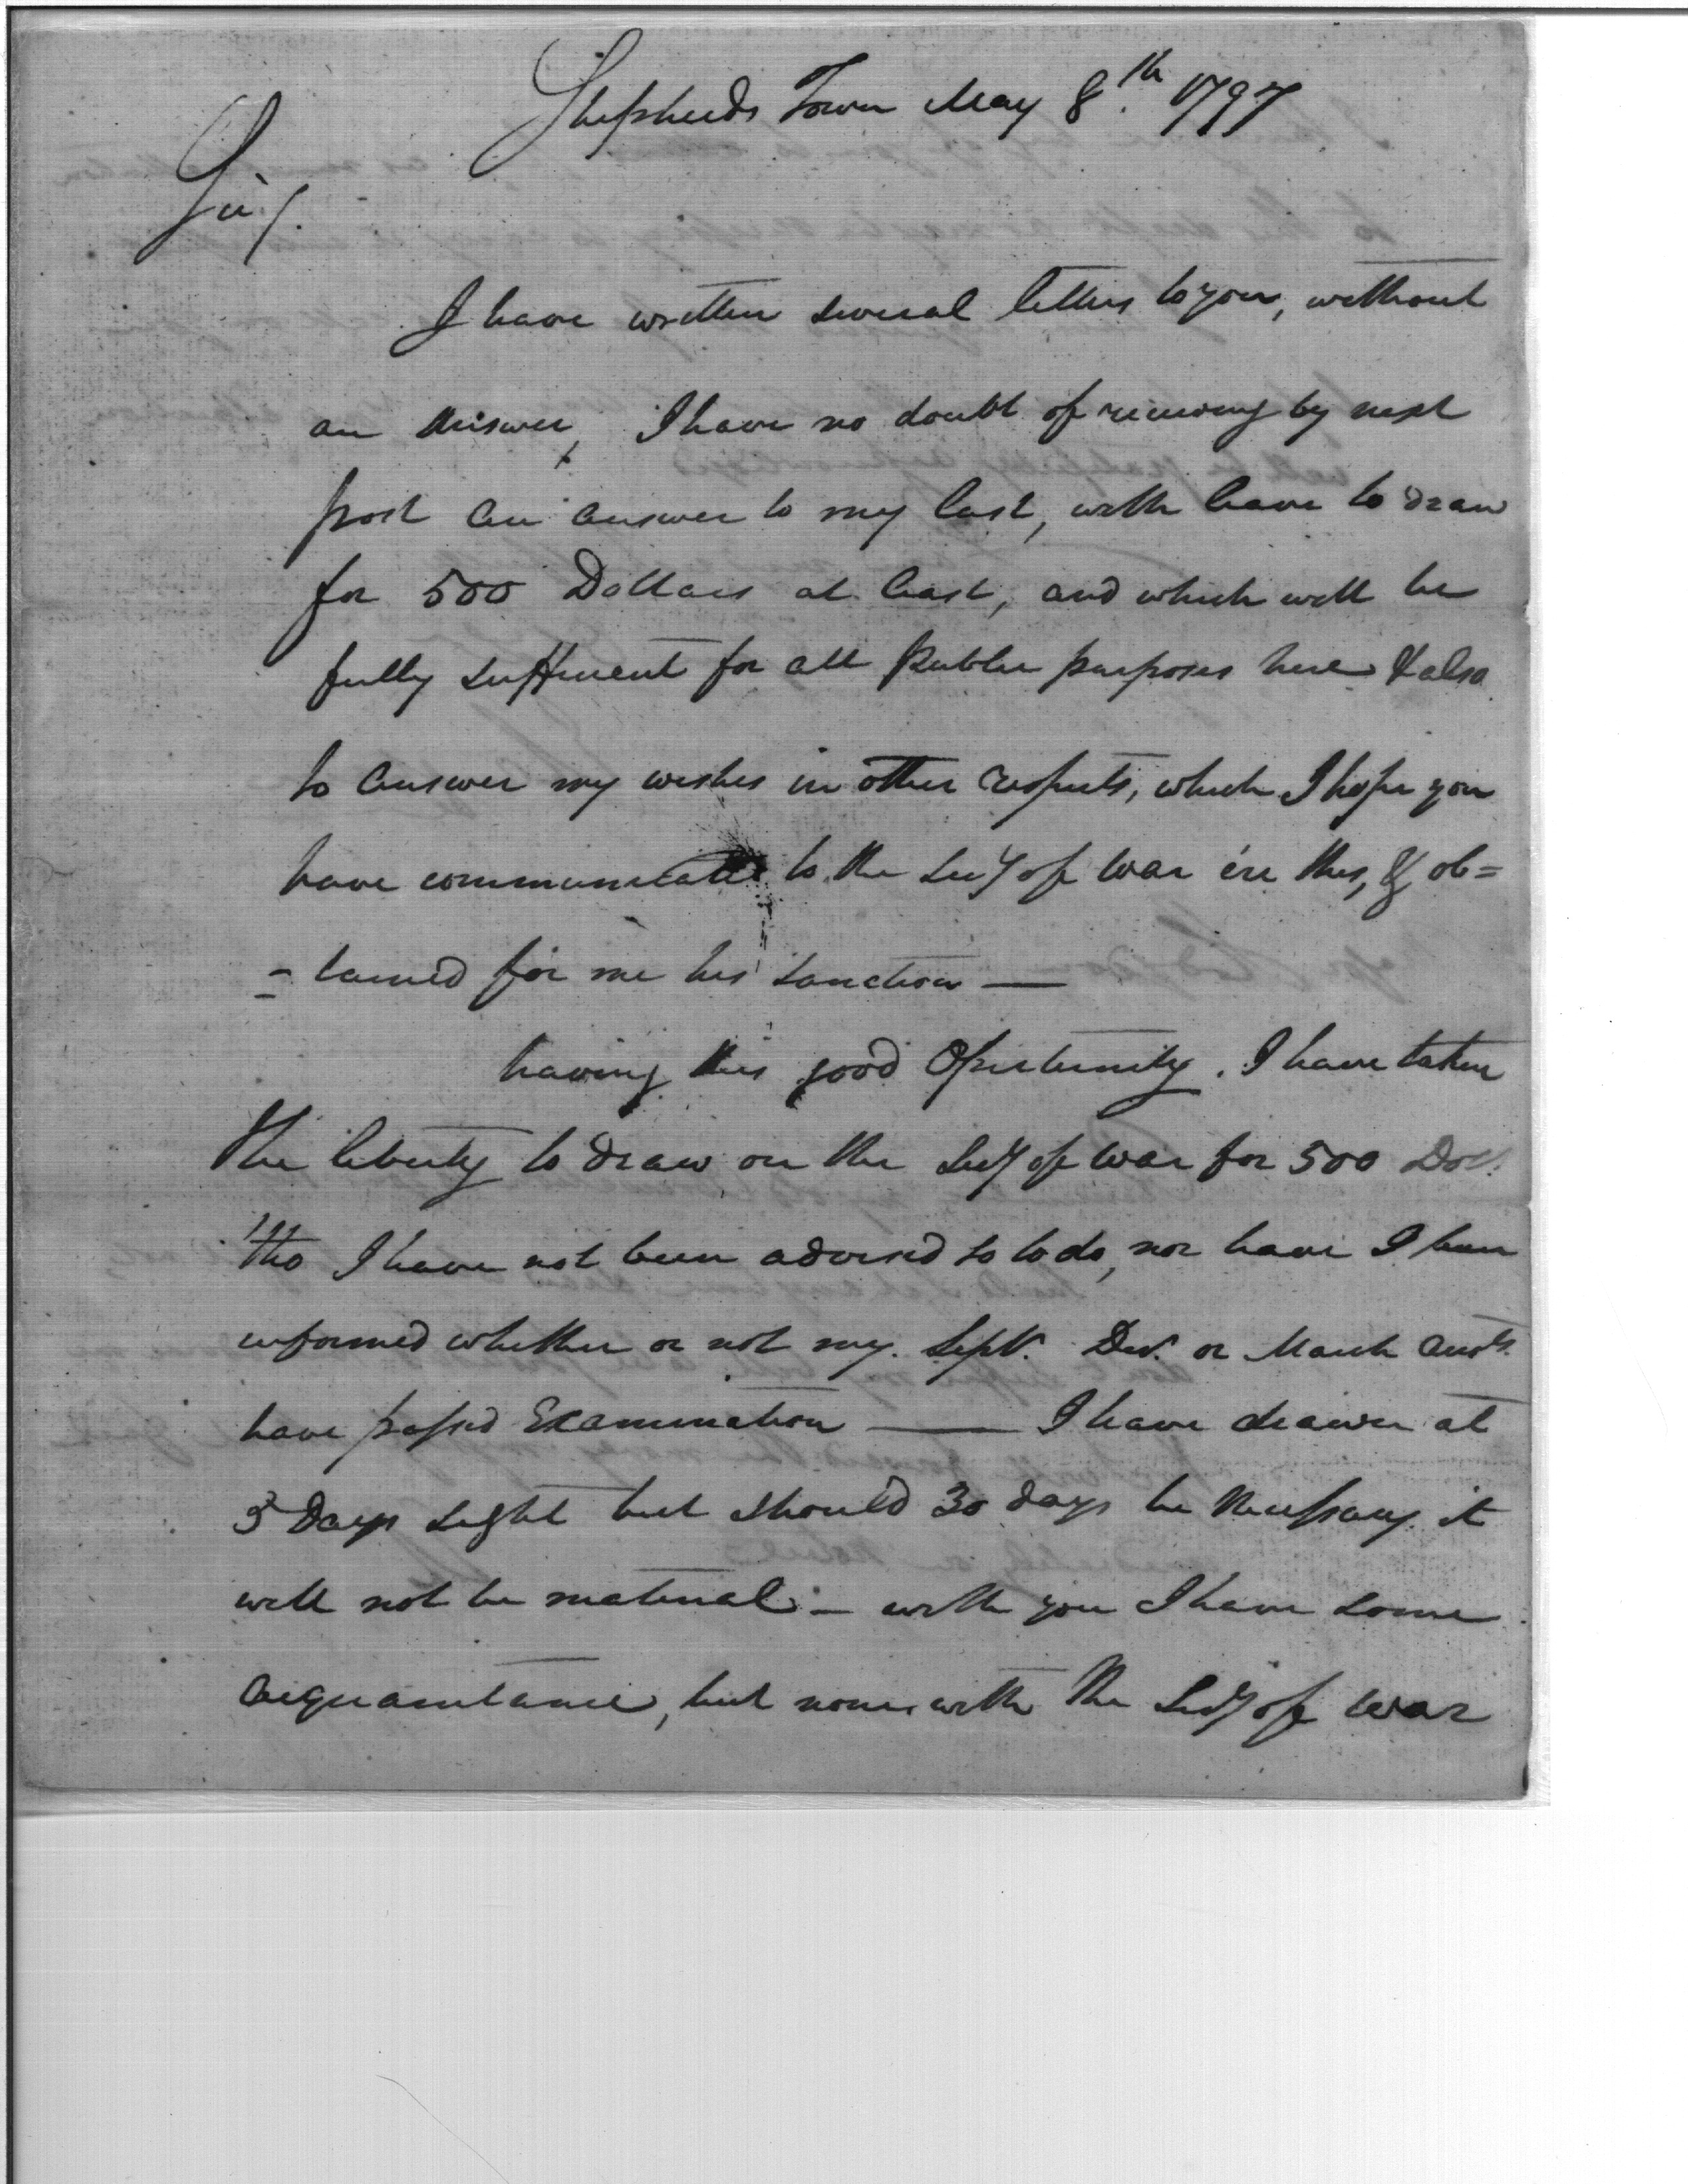 Shepherds Town May 8th. 1797
Sir/.
I have written several letters to you, without
an Answer, I have no doubt of receiving by next
post an answer to my last, with leave to draw
for 500 Dollars at least, and which will be
fully sufficient for all Public purposes here & also
to answer my wishes in other respects, which I hope you
have communicated to the Secy of War ere this, & ob=
=tained for me his sanction —
having this good Opertunity. I have taken
the liberty to draw on the Secy of War for 500 Dolls.
tho I have not been advised so to do, nor have I been
informed whether or not my Sept. Decr. or March Accts.
have passed Examination — I have drawn at
3 Days sight but should 30 days be necessary it
will not be material. – with you I have some
acquaintance, but none with the Secy of War